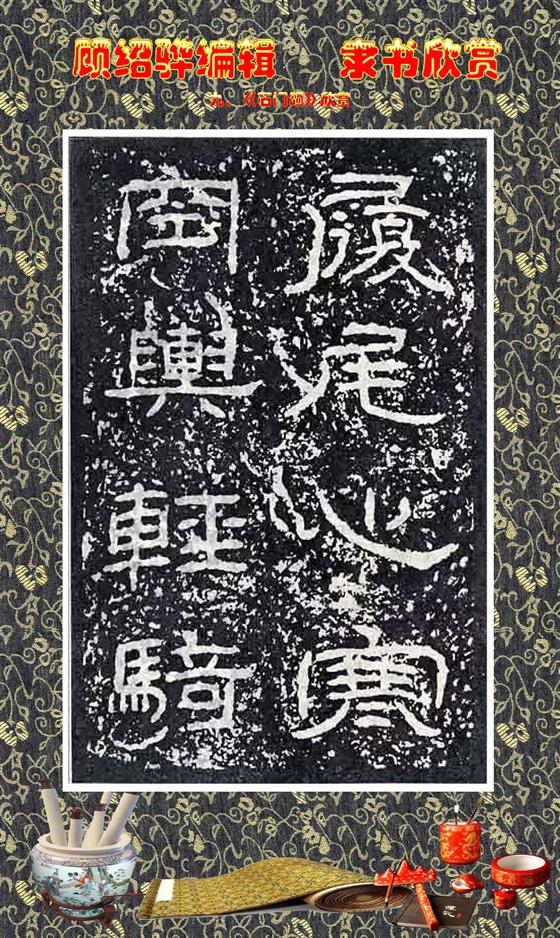 顾绍骅编辑 隶书欣赏
九、《石门颂》欣赏
履尾心寒
空輿輕騎